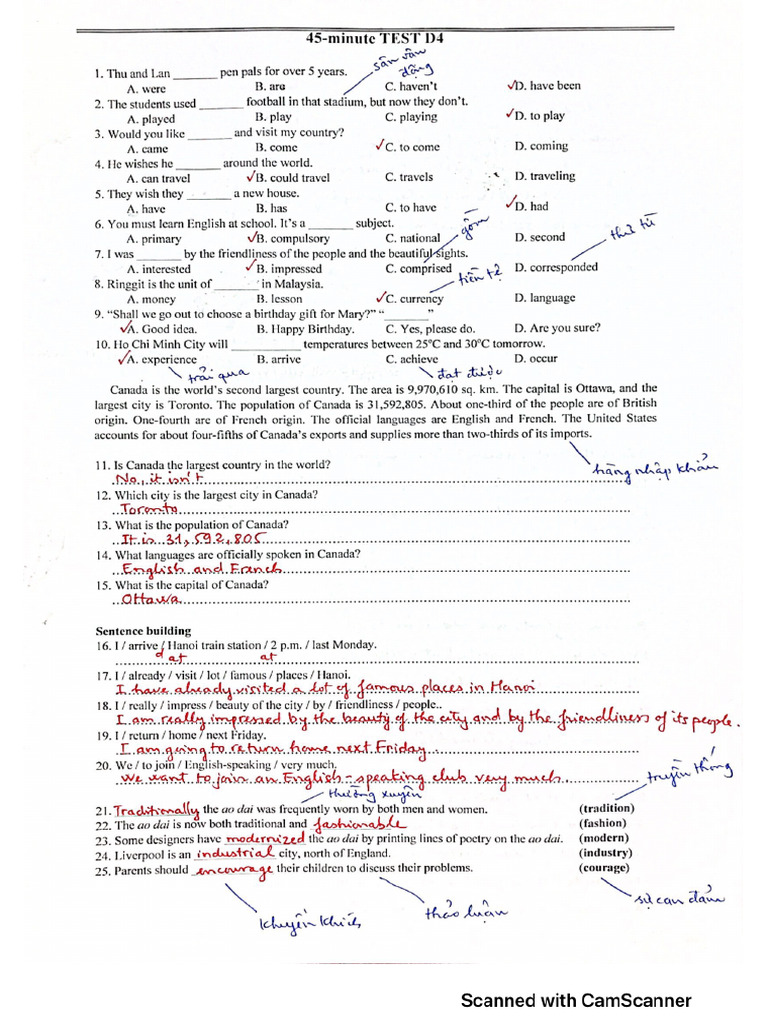 45-minute TEST D4
1. Thu and Lan _______ pen pals for over 5 years. sân vận động
A. were B. are C. haven't ✓D. have been
2. The students used _______ football in that stadium, but now they don't.
A. played B. play C. playing ✓D. to play
3. Would you like _______ and visit my country?
A. came B. come ✓C. to come D. coming
4. He wishes he _______ around the world.
A. can travel ✓B. could travel C. travels D. traveling
5. They wish they _______ a new house.
A. have B. has C. to have ✓D. had
6. You must learn English at school. It's a _______ subject. gồm
A. primary ✓B. compulsory C. national D. second thư từ
7. I was _______ by the friendliness of the people and the beautiful sights.
A. interested ✓B. impressed C. comprised D. corresponded
8. Ringgit is the unit of _______ in Malaysia. tiền tệ
A. money B. lesson ✓C. currency D. language
9. “Shall we go out to choose a birthday gift for Mary?” “_______”
✓A. Good idea. B. Happy Birthday. C. Yes, please do. D. Are you sure?
10. Ho Chi Minh City will ___________ temperatures between 25°C and 30°C tomorrow.
✓A. experience B. arrive C. achieve D. occur
trải qua đạt được
Canada is the world's second largest country. The area is 9,970,610 sq. km. The capital is Ottawa, and the
largest city is Toronto. The population of Canada is 31,592,805. About one-third of the people are of British
origin. One-fourth are of French origin. The official languages are English and French. The United States
accounts for about four-fifths of Canada's exports and supplies more than two-thirds of its imports.
11. Is Canada the largest country in the world? hàng nhập khẩu
No, it isn't
12. Which city is the largest city in Canada?
Toronto
13. What is the population of Canada?
It is 31,592,805
14. What languages are officially spoken in Canada?
English and French
15. What is the capital of Canada?
Ottawa
Sentence building
16. I / arrive / Hanoi train station / 2 p.m. / last Monday.
d at at
17. I / already / visit / lot / famous / places / Hanoi.
I have already visited a lot of famous places in Hanoi
18. I / really / impress / beauty of the city / by / friendliness / people..
I am really impressed by the beauty of the city and by the friendliness of its people.
19. I / return / home / next Friday.
I am going to return home next Friday
20. We / to join / English-speaking / very much.
We want to join an English-speaking club very much
thường xuyên truyền thống
21. Traditionally the ao dai was frequently worn by both men and women. (tradition)
22. The ao dai is now both traditional and fashionable (fashion)
23. Some designers have modernized the ao dai by printing lines of poetry on the ao dai. (modern)
24. Liverpool is an industrial city, north of England. (industry)
25. Parents should encourage their children to discuss their problems. (courage)
khuyến khích thảo luận sự can đảm
Scanned with CamScanner